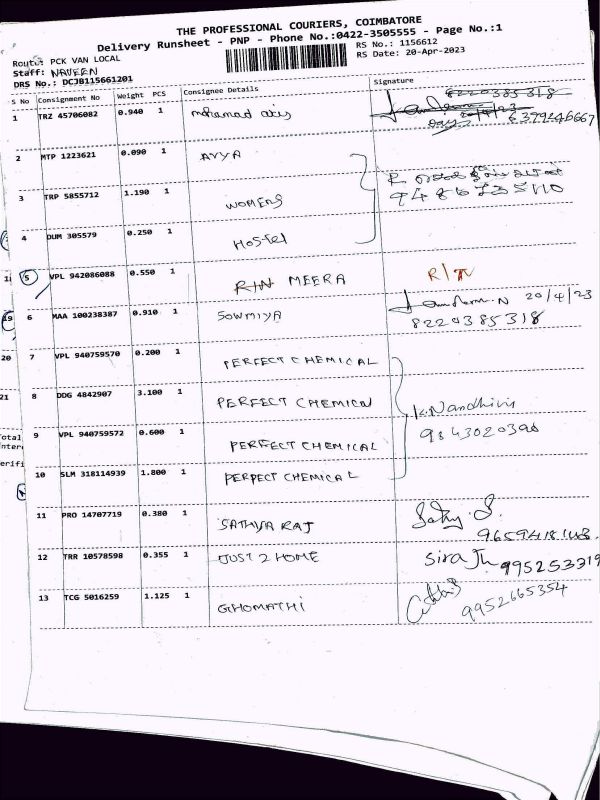 THE PROFESSIONAL COURIERS, COIMBATORE
Delivery Runsheet - PNP - Phone No.:0422-3505555 - Page No.:1
Route: PCK VAN LOCAL
RS No.: 1156612
Staff: NAVEEN
RS Date: 20-Apr-2023
DRS No.: DCJB115661201
S No Consignment No Weight PCS Consignee Details Signature
8220385318
1 TRZ 45706082 0.940 1 mohamad 20/4/23
6379246667
2 MTP 1223621 0.090 1 AVYA
3 TRP 5855712 1.190 1 WOMENS
9486735110
4 DUM 305579 0.250 1 HOSTEL
5 VPL 942086088 0.550 1 MEERA R/
6 MAA 100238387 0.910 1 SOWMIYA N 20/4/23
8220385318
20 7 VPL 940759570 0.200 1 PERFECT CHEMICAL
21 8 DDG 4842907 3.100 1 PERFECT CHEMICA
K.Nandhini
9 VPL 940759572 0.600 1 PERFECT CHEMICAL
9843020398
10 SLM 318114939 1.800 1 PERPECT CHEMICAL
11 PRO 14707719 0.380 1 SATHYA RAJ
12 TRR 10578598 0.355 1 JUST 2 HOME Siraj
13 TCG 5016259 1.125 1 GHOMATHI
9952665354